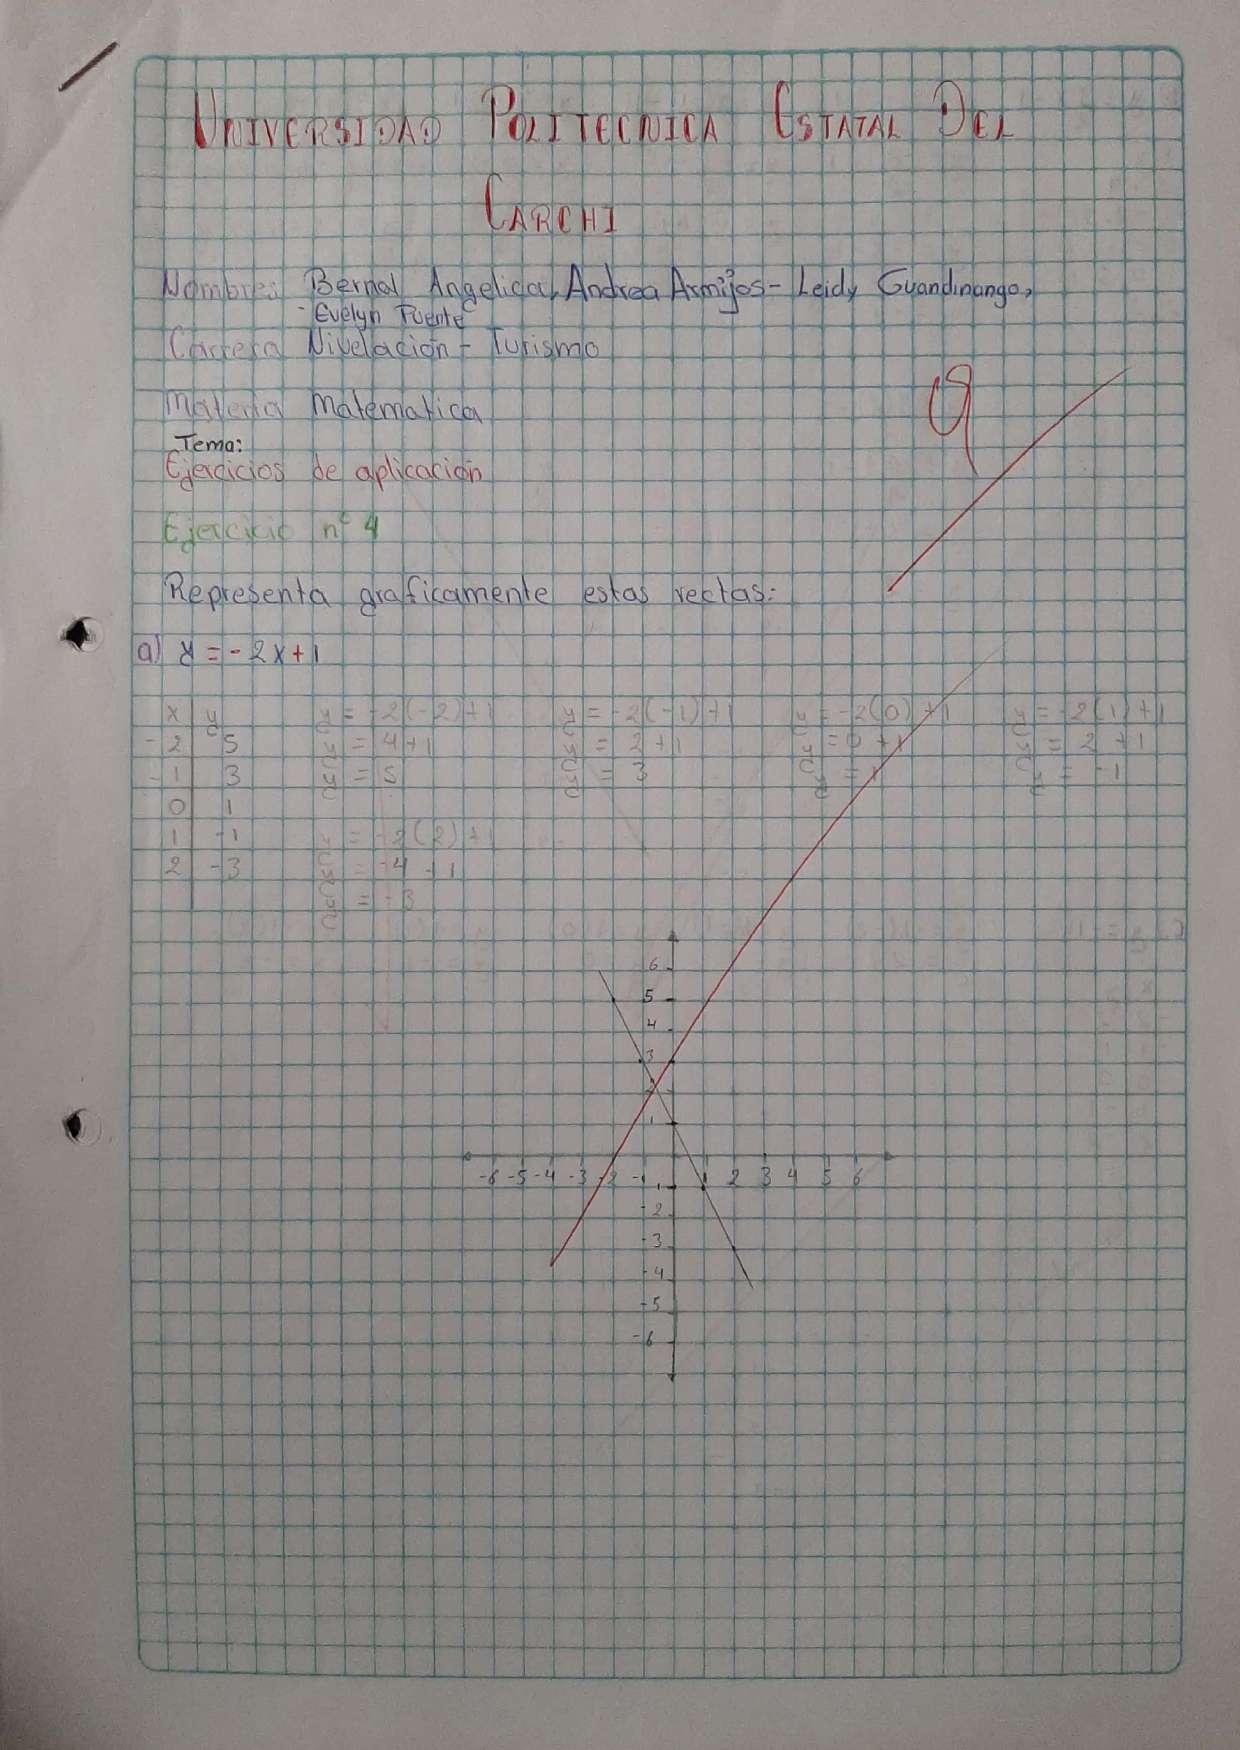 UNIVERSIDAD POLITECNICA ESTATAL DEL
CARCHI
Nombres Bernal Angelica, Andrea Armijos - Leidy Guandinango,
- Evelyn Puente
Carrera Nivelación - Turismo
Materia Matematica
Tema:
Ejercicios de aplicación
9
Ejercicio n° 4
Representa graficamente estas rectas:
a) y = -2x+1
x y
-2 5
-1 3
0 1
1 -1
2 -3
y = -2(-2)+1
y = 4+1
y = 5
y = -2(-1)+1
y = 2+1
y = 3
y = -2(0)+1
y = 0+1
y = 1
y = -2(1)+1
y = 2+1
y = -1
y = -2(2)+1
y = -4+1
y = -3
6
5
4
3
2
1
-6 -5 -4 -3 -2 -1 1 2 3 4 5 6
-1
-2
-3
-4
-5
-6